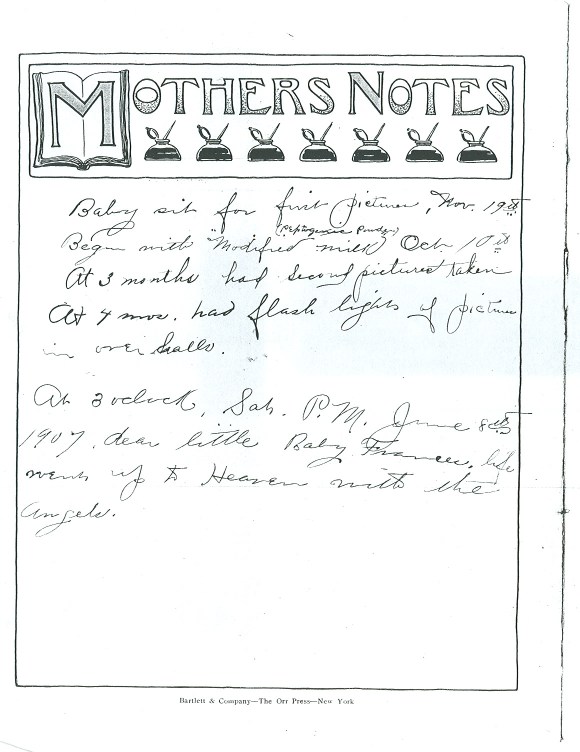 MOTHERS NOTES
Baby sit for first pictures, Nov. 19th
(Peptogenic Powder)
Began with "Modified milk Oct 10th
At 3 months had second pictures taken
At 4 mos. had flash lights of picture
in over halls.
At 3 oclock, Sat. P.M. June 8th
1907, dear little Baby Frances, life
went up to Heaven with the
angels.
Bartlett & Company—The Orr Press—New York